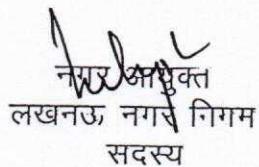 नगर आयुक्त
लखनऊ, नगर निगम
सदस्य